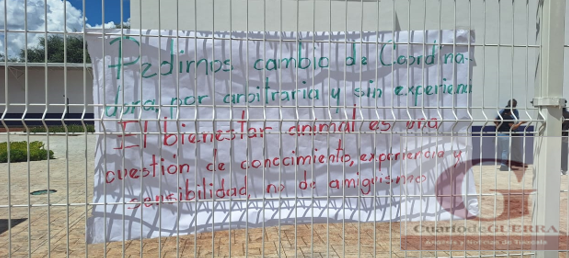 Pedimos cambio de Coordina-
dora por arbitraria y sin experiencia
El bienestar animal es una
cuestión de conocimiento, experiencia y
sensibilidad, no de amiguismo
CG
Cuarto de GUERRA